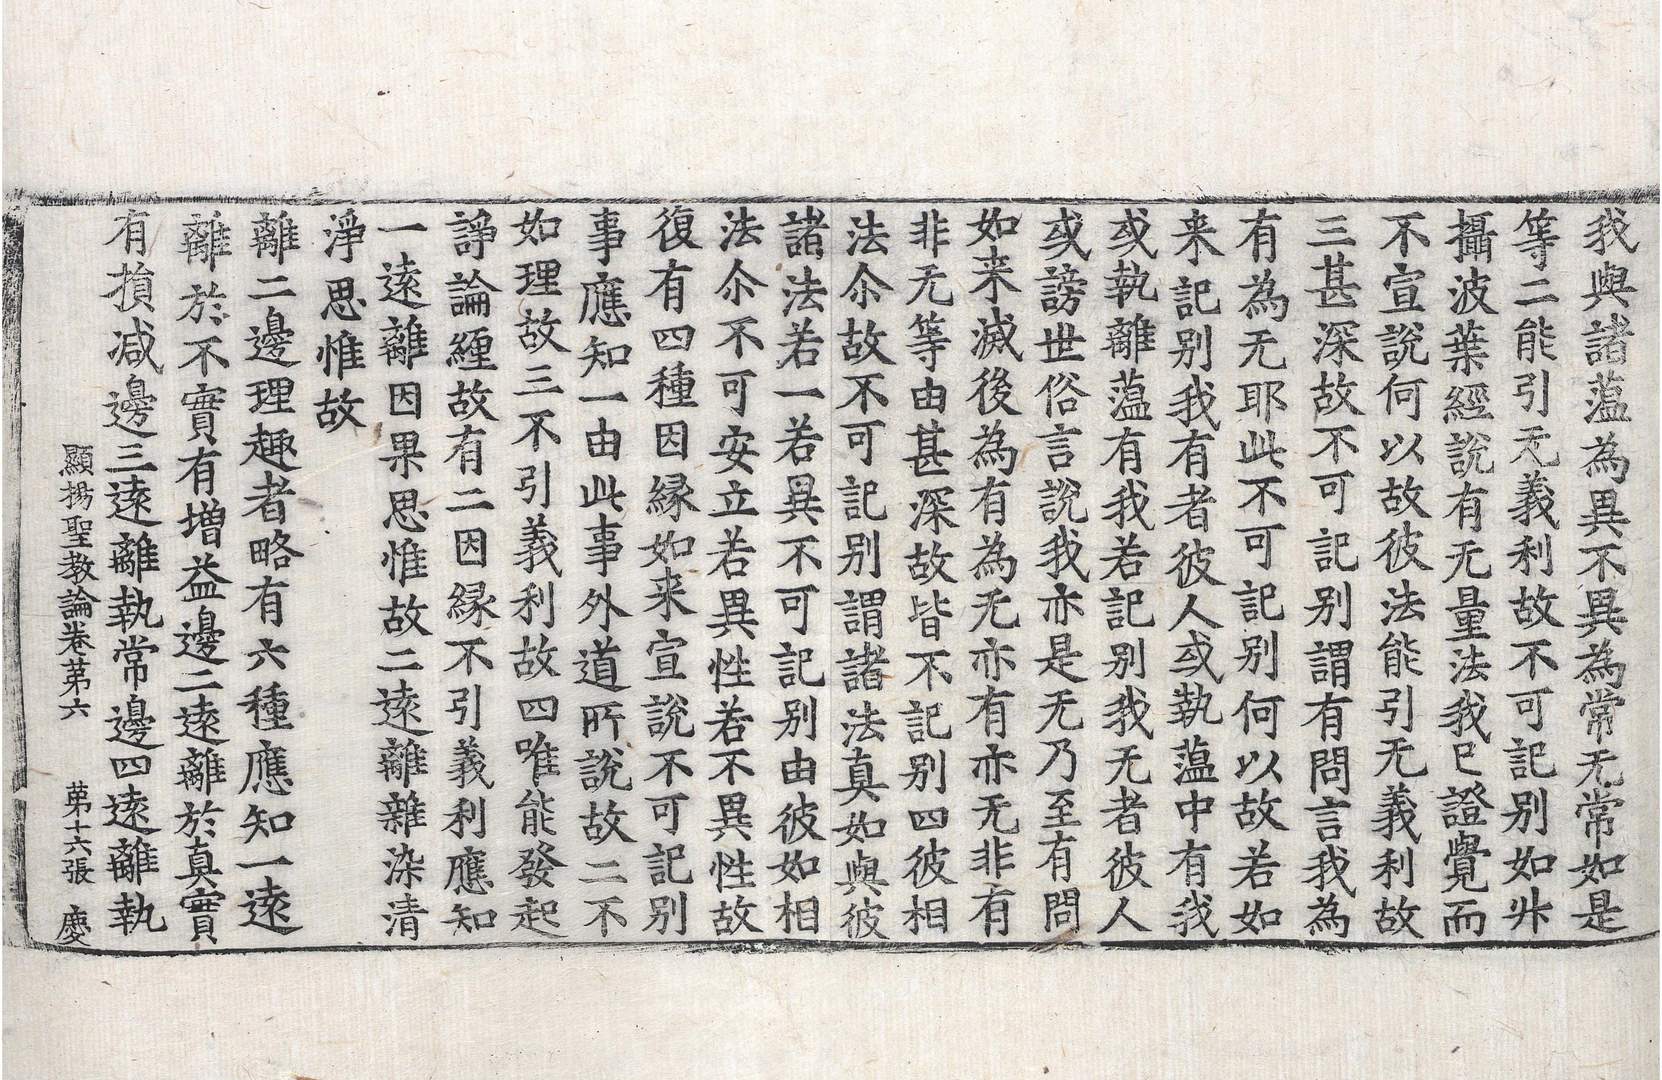 我與諸薀為異不異為常无常如是
等二能引无義利故不可記别如㭊
攝波葉經說有无量法我已證覺而
不宣說何以故彼法能引无義利故
三甚深故不可記别謂有問言我為
有為无耶此不可記别何以故若如
来記别我有者彼人或執薀中有我
或執離薀有我若記别我无者彼人
或謗世俗言說我亦是无乃至有問
如来滅後為有為无亦有亦无非有
非无等由甚深故皆不記别四彼相
法尒故不可記别謂諸法真如與彼
諸法若一若異不可記别由彼如相
法尒不可安立若異性若不異性故
復有四種因縁如来宣說不可記别
事應知一由此事外道所說故二不
如理故三不引義利故四唯能發起
諍論纏故有二因縁不引義利應知
一遠離因果思惟故二遠離雜染清
淨思惟故
離二邊理趣者略有六種應知一遠
離於不實有增益邊二遠離於真實
有損减邊三遠離執常邊四遠離執
顯揚聖教論卷苐六 苐十六張 慶